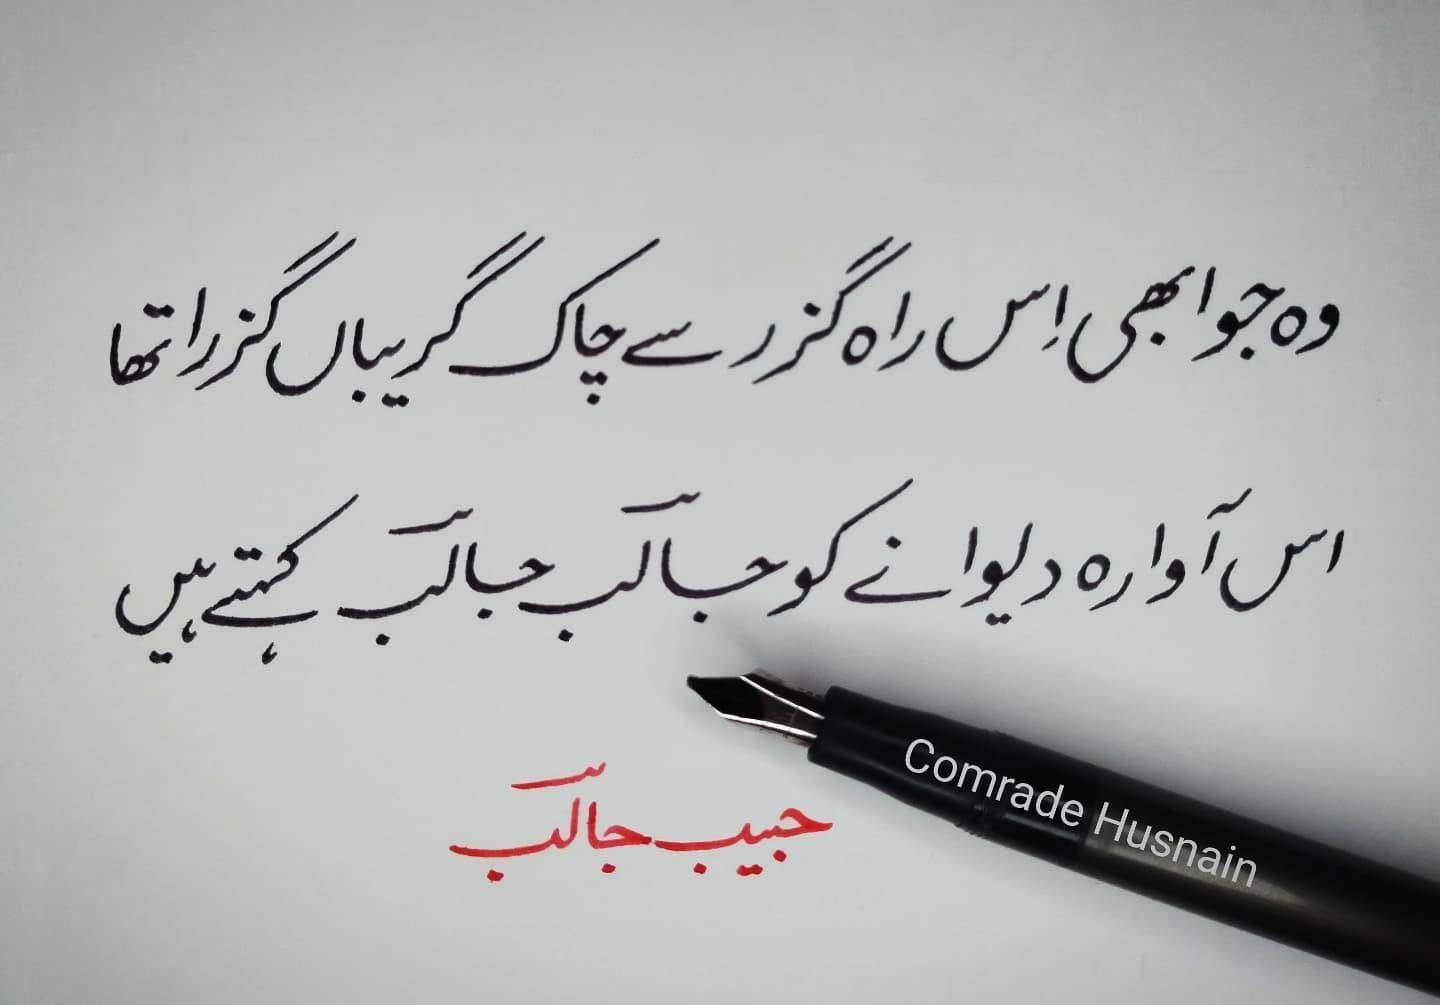 وہ جو ابھی اِس راہ گزر سے چاک گریباں گزرا تھا
اس آوارہ دیوانے کو جالبؔ جالبؔ کہتے ہیں
حبیب جالبؔ
Comrade Husnain